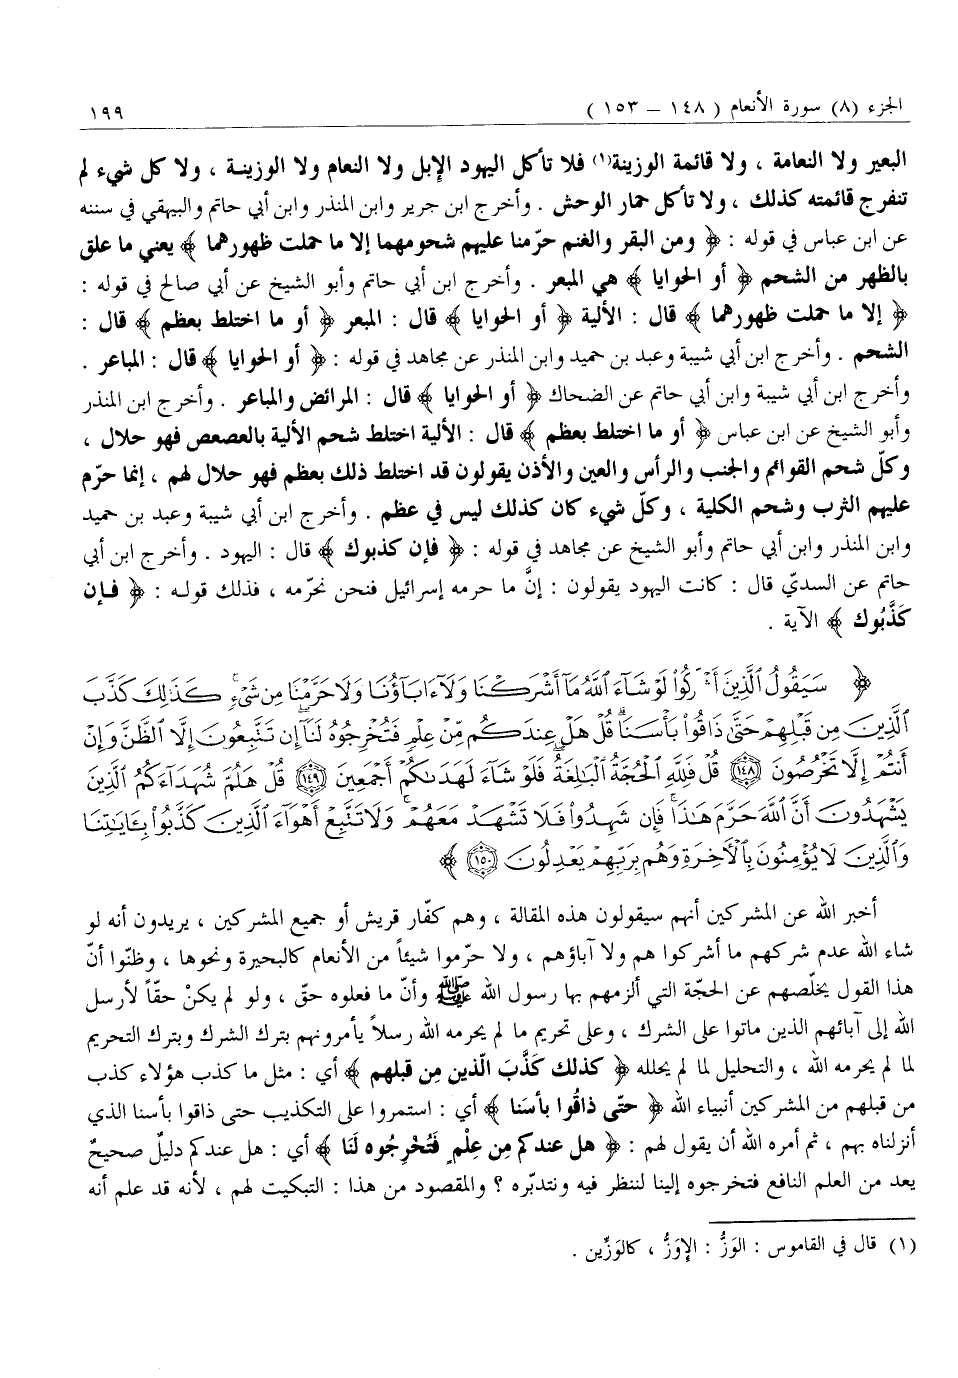 الجزء (٨) سورة الأنعام ( ١٤٨ – ١٥٣ )
١٩٩
البعير ولا النعامة ، ولا قائمة الوزينة(١) فلا تأكل اليهود الإبل ولا النعام ولا الوزينة ، ولا كل شيء لم
تنفرج قائمته كذلك ، ولا تأكل حمار الوحش . وأخرج ابن جرير وابن المنذر وابن أبي حاتم والبيهقي في سننه
عن ابن عباس في قوله : ﴿ ومن البقر والغنم حرّمنا عليهم شحومهما إلا ما حملت ظهورهما ﴾ يعني ما علق
بالظهر من الشحم ﴿ أو الحوايا ﴾ هي المبعر . وأخرج ابن أبي حاتم وأبو الشيخ عن أبي صالح في قوله :
﴿ إلا ما حملت ظهورهما ﴾ قال : الألية ﴿ أو الحوايا ﴾ قال : المبعر ﴿ أو ما اختلط بعظم ﴾ قال :
الشحم . وأخرج ابن أبي شيبة وعبد بن حميد وابن المنذر عن مجاهد في قوله : ﴿ أو الحوايا ﴾ قال : المباعر .
وأخرج ابن أبي شيبة وابن أبي حاتم عن الضحاك ﴿ أو الحوايا ﴾ قال : المرائض والمباعر . وأخرج ابن المنذر
وأبو الشيخ عن ابن عباس ﴿ أو ما اختلط بعظم ﴾ قال : الألية اختلط شحم الألية بالعصعص فهو حلال ،
وكلّ شحم القوائم والجنب والرأس والعين والأذن يقولون قد اختلط ذلك بعظم فهو حلال لهم ، إنما حرّم
عليهم الثرب وشحم الكلية ، وكلّ شيء كان كذلك ليس في عظم . وأخرج ابن أبي شيبة وعبد بن حميد
وابن المنذر وابن أبي حاتم وأبو الشيخ عن مجاهد في قوله : ﴿ فإن كذبوك ﴾ قال : اليهود . وأخرج ابن أبي
حاتم عن السديّ قال : كانت اليهود يقولون : إنَّ ما حرمه إسرائيل فنحن نحرّمه ، فذلك قوله : ﴿ فإن
كَذَّبُوك ﴾ الآية .
﴿ سَيَقُولُ ٱلَّذِينَ أَشْرَكُوا۟ لَوْ شَآءَ ٱللَّهُ مَآ أَشْرَكْنَا وَلَآ ءَابَآؤُنَا وَلَا حَرَّمْنَا مِن شَىْءٍ ۚ كَذَٰلِكَ كَذَّبَ
ٱلَّذِينَ مِن قَبْلِهِمْ حَتَّىٰ ذَاقُوا۟ بَأْسَنَا ۗ قُلْ هَلْ عِندَكُم مِّنْ عِلْمٍ فَتُخْرِجُوهُ لَنَآ ۖ إِن تَتَّبِعُونَ إِلَّا ٱلظَّنَّ وَإِنْ
أَنتُمْ إِلَّا تَخْرُصُونَ ١٤٨ قُلْ فَلِلَّهِ ٱلْحُجَّةُ ٱلْبَٰلِغَةُ ۖ فَلَوْ شَآءَ لَهَدَىٰكُمْ أَجْمَعِينَ ١٤٩ قُلْ هَلُمَّ شُهَدَآءَكُمُ ٱلَّذِينَ
يَشْهَدُونَ أَنَّ ٱللَّهَ حَرَّمَ هَٰذَا ۖ فَإِن شَهِدُوا۟ فَلَا تَشْهَدْ مَعَهُمْ ۚ وَلَا تَتَّبِعْ أَهْوَآءَ ٱلَّذِينَ كَذَّبُوا۟ بِـَٔايَٰتِنَا
وَٱلَّذِينَ لَا يُؤْمِنُونَ بِٱلْـَٔاخِرَةِ وَهُم بِرَبِّهِمْ يَعْدِلُونَ ١٥٠ ﴾
أخبر الله عن المشركين أنهم سيقولون هذه المقالة ، وهم كفّار قريش أو جميع المشركين ، يريدون أنه لو
شاء الله عدم شركهم ما أشركوا هم ولا آباؤهم ، ولا حرّموا شيئاً من الأنعام كالبحيرة ونحوها ، وظنّوا أنّ
هذا القول يخلّصهم عن الحجّة التي ألزمهم بها رسول الله ﷺ وأنّ ما فعلوه حق ، ولو لم يكنْ حقّاً لأرسل
الله إلى آبائهم الذين ماتوا على الشرك ، وعلى تحريم ما لم يحرمه الله رسلاً يأمرونهم بترك الشرك وبترك التحريم
لما لم يحرمه الله ، والتحليل لما لم يحلله ﴿ كذلك كَذَّبَ الّذين مِن قبلهم ﴾ أي : مثل ما كذب هؤلاء كذب
من قبلهم من المشركين أنبياء الله ﴿ حتّى ذاقُوا بأسَنا ﴾ أي : استمروا على التكذيب حتى ذاقوا بأسنا الذي
أنزلناه بهم ، ثم أمره الله أن يقول لهم : ﴿ هل عندكم مِن عِلْمٍ فَتُخْرِجُوه لَنَا ﴾ أي : هل عندكم دليلٌ صحيحٌ
يعد من العلم النافع فتخرجوه إلينا لننظر فيه ونتدبّره ؟ والمقصود من هذا : التبكيت لهم ، لأنه قد علم أنه
(١) قال في القاموس : الوَزُّ : الإوَزُّ ، كالوَزِّين .